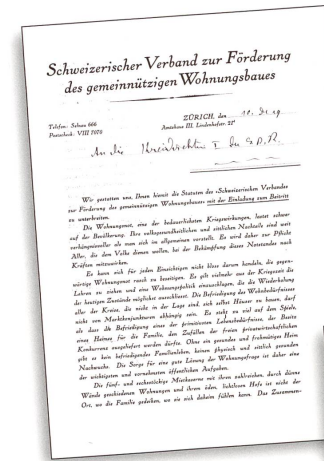 Schweizerischer Verband zur Förderung
des gemeinnützigen Wohnungsbaues
Telefon: Selnau 666
Postscheck: VIII 7070
ZÜRICH, den
Amtshaus III, Lindenhofstr. 21
An die Kreisdirektion
Wir gestatten uns, Ihnen hiemit die Statuten des «Schweizerischen Verbandes
zur Förderung des gemeinnützigen Wohnungsbaues» mit der Einladung zum Beitritt
zu unterbreiten.
Die Wohnungsnot, eine der bedauerlichsten Kriegswirkungen, lastet schwer
auf der Bevölkerung. Ihre volksgesundheitlichen und sittlichen Nachteile sind weit
verhängnisvoller als man sich im allgemeinen vorstellt. Es wird daher zur Pflicht
Aller, die dem Volke dienen wollen, bei der Bekämpfung dieses Notstandes nach
Kräften mitzuwirken.
Es kann sich für jeden Einsichtigen nicht bloss darum handeln, die gegen-
wärtige Wohnungsnot rasch zu beseitigen. Es gilt vielmehr aus der Kriegszeit die
Lehren zu ziehen und eine Wohnungspolitik einzuschlagen, die die Wiederholung
der heutigen Zustände möglichst ausschliesst. Die Befriedigung des Wohnbedürfnisses
aller der Kreise, die nicht in der Lage sind, sich selbst Häuser zu bauen, darf
nicht von Marktkonjunkturen abhängig sein. Es steht zu viel auf dem Spiele,
als dass die Befriedigung eines der primitivsten Lebensbedürfnisse, der Besitz
eines Heimes für die Familie, den Zufällen der freien privatwirtschaftlichen
Konkurrenz ausgeliefert werden dürfte. Ohne ein gesundes und freimütiges Heim
gibt es kein befriedigendes Familienleben, keinen physisch und sittlich gesunden
Nachwuchs. Die Sorge für eine gute Lösung der Wohnungsfrage ist daher eine
der wichtigsten und vornehmsten öffentlichen Aufgaben.
Die fünf- und sechsstöckige Mietkaserne mit ihren zahlreichen, durch dünne
Wände geschiedenen Wohnungen und ihrem öden, lichtlosen Hofe ist nicht der
Ort, wo die Familie gedeihen, wo sie sich daheim fühlen kann. Das Zusammen-